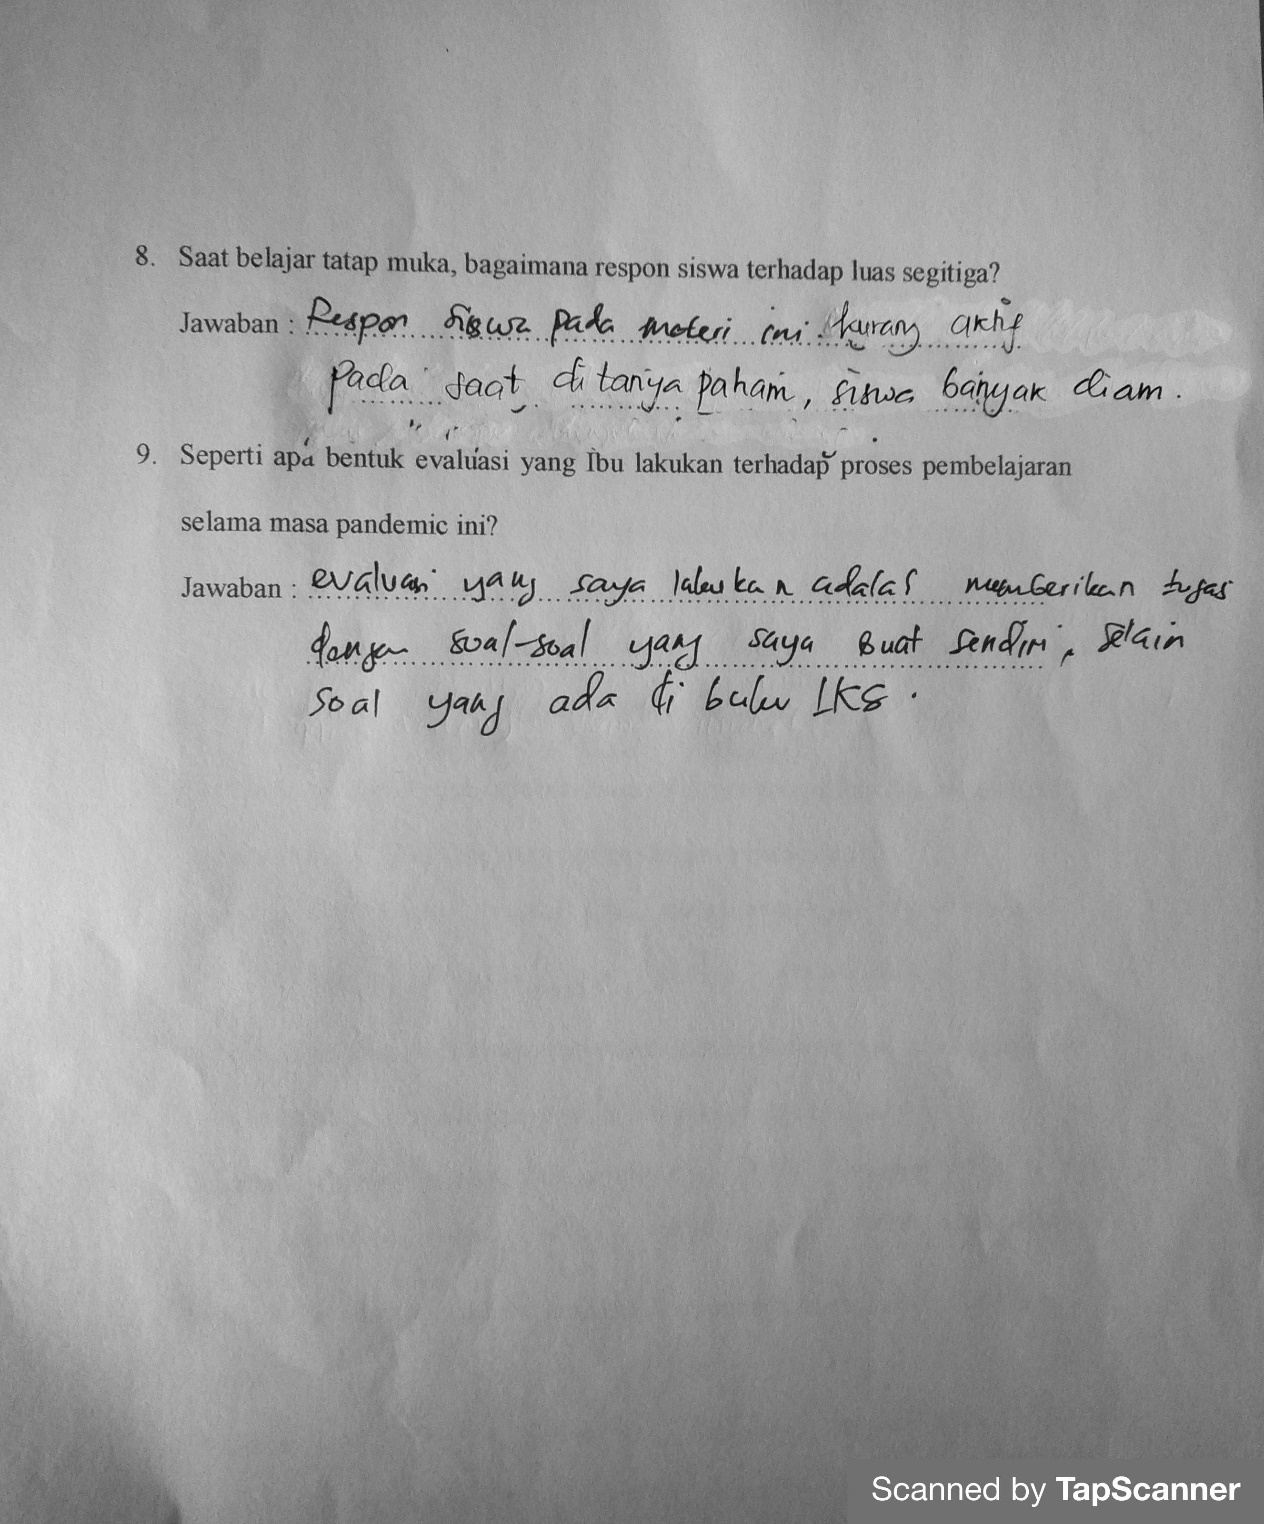 8. Saat belajar tatap muka, bagaimana respon siswa terhadap luas segitiga?
Jawaban : Respon siswa pada materi ini kurang aktif
pada saat di tanya paham, siswa banyak diam.
9. Seperti apa bentuk evaluasi yang Ibu lakukan terhadap proses pembelajaran
selama masa pandemic ini?
Jawaban : evaluasi yang saya lakukan adalah memberikan tugas
dengan soal-soal yang saya buat sendiri, selain
soal yang ada di buku LKS.
Scanned by TapScanner